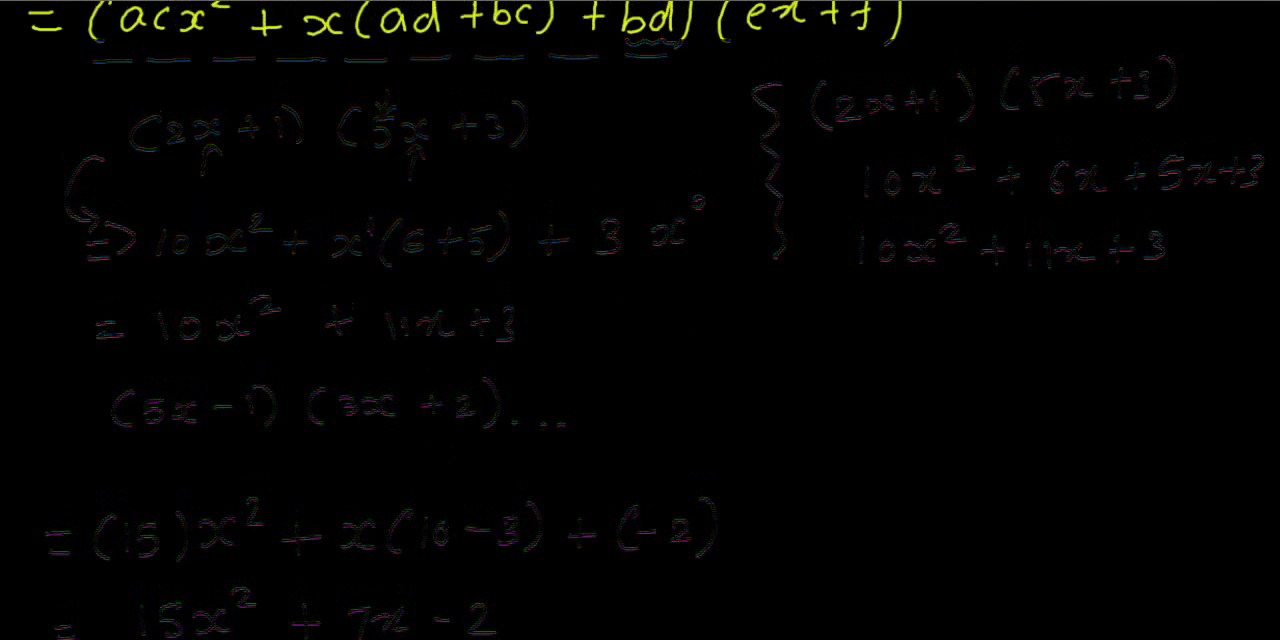 = (acx² + x(ad + bc) + bd) (ex + f)
(2x + 1) (5x + 3)
=> 10x² + x¹(6+5) + 3x⁰
= 10x² + 11x + 3
(5x - 1) (3x + 2)...
= (15)x² + x(10 - 3) + (-2)
= 15x² + 7x - 2
(2x+1) (5x+3)
10x² + 6x + 5x+3
10x² + 11x + 3